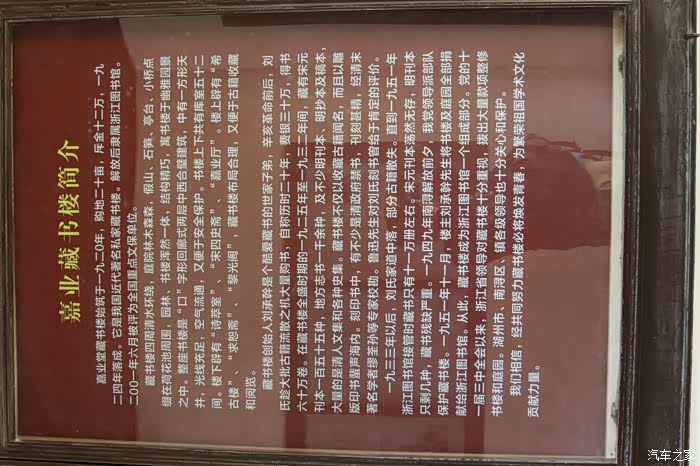 嘉业藏书楼简介
嘉业堂藏书楼始筑于一九二0年，购地二十亩，斥金十二万，一九
二四年落成。它是我国近代著名私家藏书楼。解放后隶属浙江图书馆。
二00一年六月被评为全国重点文保单位。
藏书楼四周清水环绕，庭院林木森森，假山、石笋、亭台、小桥点
缀在荷花池周围，园林、书楼浑然一体，结构精巧，寓书楼于幽雅园景
之中。整座书楼是“口”字形回廊式两层中西合璧建筑，中有一方形天
井，光线充足，空气流通，又便于安全保护。书楼上下共有库室五十二
间。楼下辟有“诗萃室”、“宋四史斋”、“嘉业厅”。楼上辟有“希
古楼”、“求恕斋”、“黎光阁”，藏书楼布局合理，又便于古籍收藏
和阅览。
藏书楼创始人刘承幹是个酷爱藏书的世家子弟，辛亥革命前后，刘
氏趁大批古籍流散之机大量购书，自称历时二十年，费银三十万，得书
六十万卷。在藏书楼全盛时期的一九二五年至一九三二年间，藏有宋元
刊本一百五十五种，地方志书一千余种，及不少明刊本、明抄本及稿本，
大量的是清人文集和各种史集。藏书楼不仅以收藏古籍闻名，而且以雕
版印书蜚声海内。刻印书中，有不少是清政府禁书，刊刻甚精，经清末
著名学者缪荃孙等专家校勘。鲁迅先生对刘氏刻书曾给于肯定的评价。
一九三三年以后，刘氏家道中落，部分古籍散失。直到一九五一年
浙江图书馆接管时藏书只有十一万册左右。宋元刊本荡然无存，明刊本
只剩几种，藏书残缺严重。一九四九年南浔解放前夕，我党领导派部队
保护藏书楼。一九五一年十一月，楼主刘承幹先生将书楼及庭园全部捐
献给浙江图书馆。从此，藏书楼成为浙江图书馆一个组成部分。党的十
一届三中全会以来，浙江省领导对藏书楼十分重视，拨出大量款项整修
书楼和庭园。湖州市、南浔区、镇各级领导也十分关心和保护。
我们相信，经共同努力藏书楼必将焕发青春，为繁荣祖国学术文化
贡献力量。
汽车之家